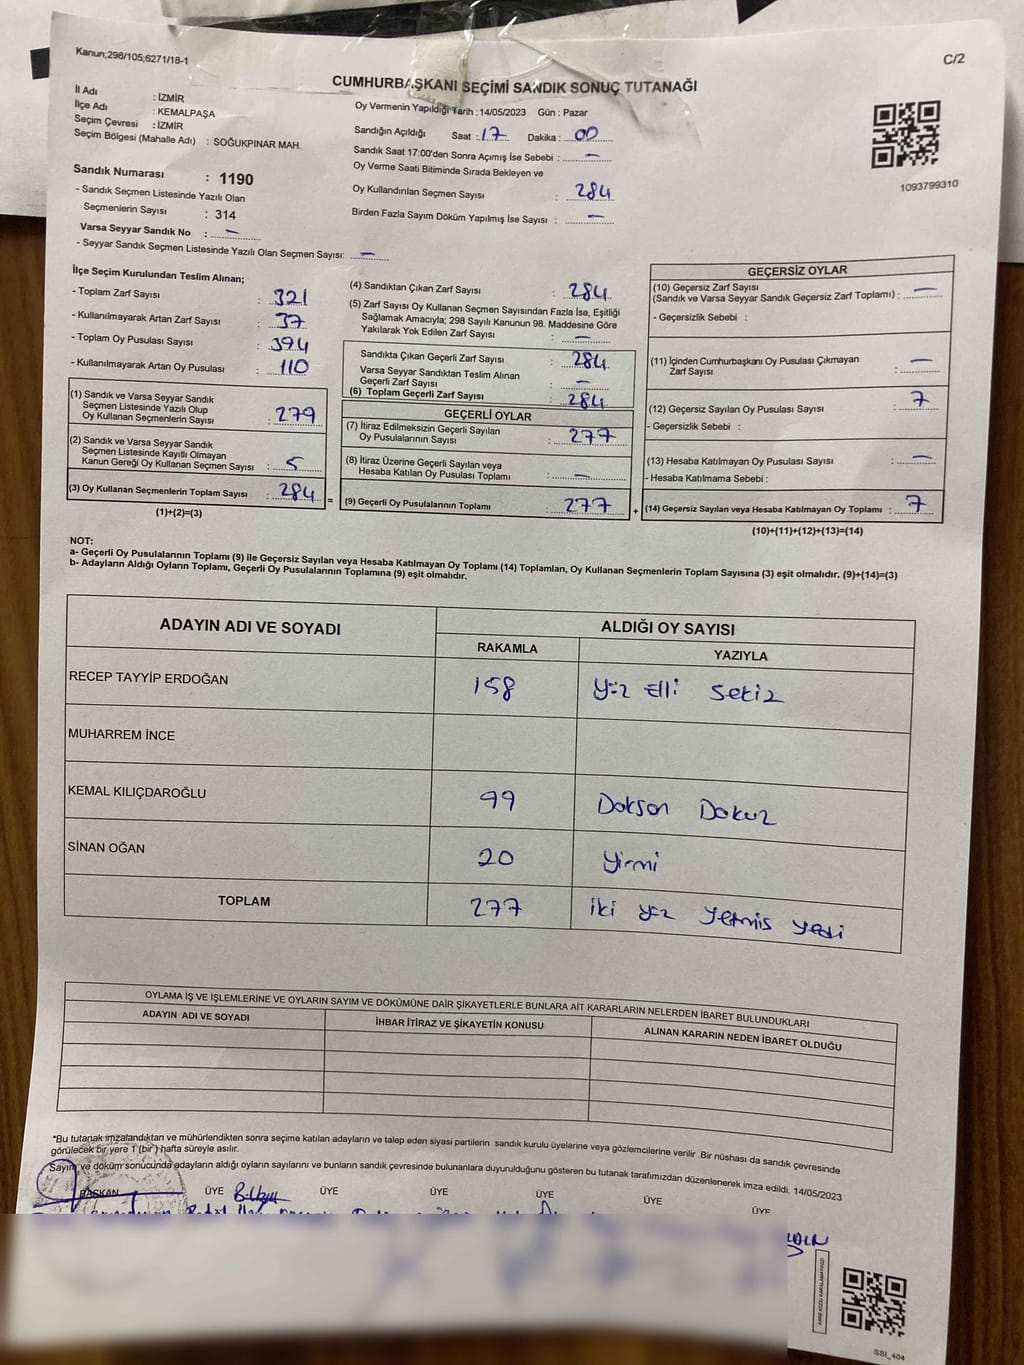 Kanun;298/105;6271/18-1
C/2
CUMHURBAŞKANI SEÇİMİ SANDIK SONUÇ TUTANAĞI
İl Adı : İZMİR
İlçe Adı : KEMALPAŞA
Seçim Çevresi : İZMİR
Seçim Bölgesi (Mahalle Adı) : SOĞUKPINAR MAH.
Oy Vermenin Yapıldığı Tarih : 14/05/2023 Gün : Pazar
Sandığın Açıldığı Saat : 17 Dakika : 00
Sandık Saat 17:00'den Sonra Açımış İse Sebebi : —
Oy Verme Saati Bitiminde Sırada Bekleyen ve
Oy Kullandırılan Seçmen Sayısı : 284
Birden Fazla Sayım Döküm Yapılmış İse Sayısı : —
1093799310
Sandık Numarası : 1190
- Sandık Seçmen Listesinde Yazılı Olan
Seçmenlerin Sayısı : 314
Varsa Seyyar Sandık No : —
- Seyyar Sandık Seçmen Listesinde Yazılı Olan Seçmen Sayısı: —
İlçe Seçim Kurulundan Teslim Alınan;
- Toplam Zarf Sayısı : 321
- Kullanılmayarak Artan Zarf Sayısı : 37
- Toplam Oy Pusulası Sayısı : 394
- Kullanılmayarak Artan Oy Pusulası : 110
(1) Sandık ve Varsa Seyyar Sandık
Seçmen Listesinde Yazılı Olup
Oy Kullanan Seçmenlerin Sayısı : 279
(2) Sandık ve Varsa Seyyar Sandık
Seçmen Listesinde Kayıtlı Olmayan
Kanun Gereği Oy Kullanan Seçmen Sayısı : 5
(3) Oy Kullanan Seçmenlerin Toplam Sayısı : 284 =
(1)+(2)=(3)
(4) Sandıktan Çıkan Zarf Sayısı : 284
(5) Zarf Sayısı Oy Kullanan Seçmen Sayısından Fazla İse, Eşitliği
Sağlamak Amacıyla; 298 Sayılı Kanunun 98. Maddesine Göre
Yakılarak Yok Edilen Zarf Sayısı : —
Sandıkta Çıkan Geçerli Zarf Sayısı : 284
Varsa Seyyar Sandıktan Teslim Alınan
Geçerli Zarf Sayısı : —
(6) Toplam Geçerli Zarf Sayısı : 284
GEÇERLİ OYLAR
(7) İtiraz Edilmeksizin Geçerli Sayılan
Oy Pusulalarının Sayısı : 277
(8) İtiraz Üzerine Geçerli Sayılan veya
Hesaba Katılan Oy Pusulası Toplamı : —
(9) Geçerli Oy Pusulalarının Toplamı : 277 +
GEÇERSİZ OYLAR
(10) Geçersiz Zarf Sayısı
(Sandık ve Varsa Seyyar Sandık Geçersiz Zarf Toplamı) : —
- Geçersizlik Sebebi :
(11) İçinden Cumhurbaşkanı Oy Pusulası Çıkmayan
Zarf Sayısı : —
(12) Geçersiz Sayılan Oy Pusulası Sayısı : 7
- Geçersizlik Sebebi :
(13) Hesaba Katılmayan Oy Pusulası Sayısı : —
- Hesaba Katılmama Sebebi :
(14) Geçersiz Sayılan veya Hesaba Katılmayan Oy Toplamı : 7
(10)+(11)+(12)+(13)=(14)
NOT:
a- Geçerli Oy Pusulalarının Toplamı (9) ile Geçersiz Sayılan veya Hesaba Katılmayan Oy Toplamı (14) Toplamları, Oy Kullanan Seçmenlerin Toplam Sayısına (3) eşit olmalıdır. (9)+(14)=(3)
b- Adayların Aldığı Oyların Toplamı, Geçerli Oy Pusulalarının Toplamına (9) eşit olmalıdır.
ADAYIN ADI VE SOYADI
ALDIĞI OY SAYISI
RAKAMLA YAZIYLA
RECEP TAYYİP ERDOĞAN 158 yüz Elli Sekiz
MUHARREM İNCE
KEMAL KILIÇDAROĞLU 99 Doksan Dokuz
SİNAN OĞAN 20 yirmi
TOPLAM 277 iki yüz yetmis yedi
OYLAMA İŞ VE İŞLEMLERİNE VE OYLARIN SAYIM VE DÖKÜMÜNE DAİR ŞİKAYETLERLE BUNLARA AİT KARARLARIN NELERDEN İBARET BULUNDUKLARI
ADAYIN ADI VE SOYADI İHBAR İTİRAZ VE ŞİKAYETİN KONUSU ALINAN KARARIN NEDEN İBARET OLDUĞU
*Bu tutanak imzalandıktan ve mühürlendikten sonra seçime katılan adayların ve talep eden siyasi partilerin sandık kurulu üyelerine veya gözlemcilerine verilir .Bir nüshası da sandık çevresinde
görülecek bir yere 1 (bir ) hafta süreyle asılır.
Sayım ve döküm sonucunda adayların aldığı oyların sayılarını ve bunların sandık çevresinde bulunanlara duyurulduğunu gösteren bu tutanak tarafımızdan düzenlenerek imza edildi. 14/05/2023
BAŞKAN ÜYE ÜYE ÜYE ÜYE ÜYE ÜYE
SSI_404